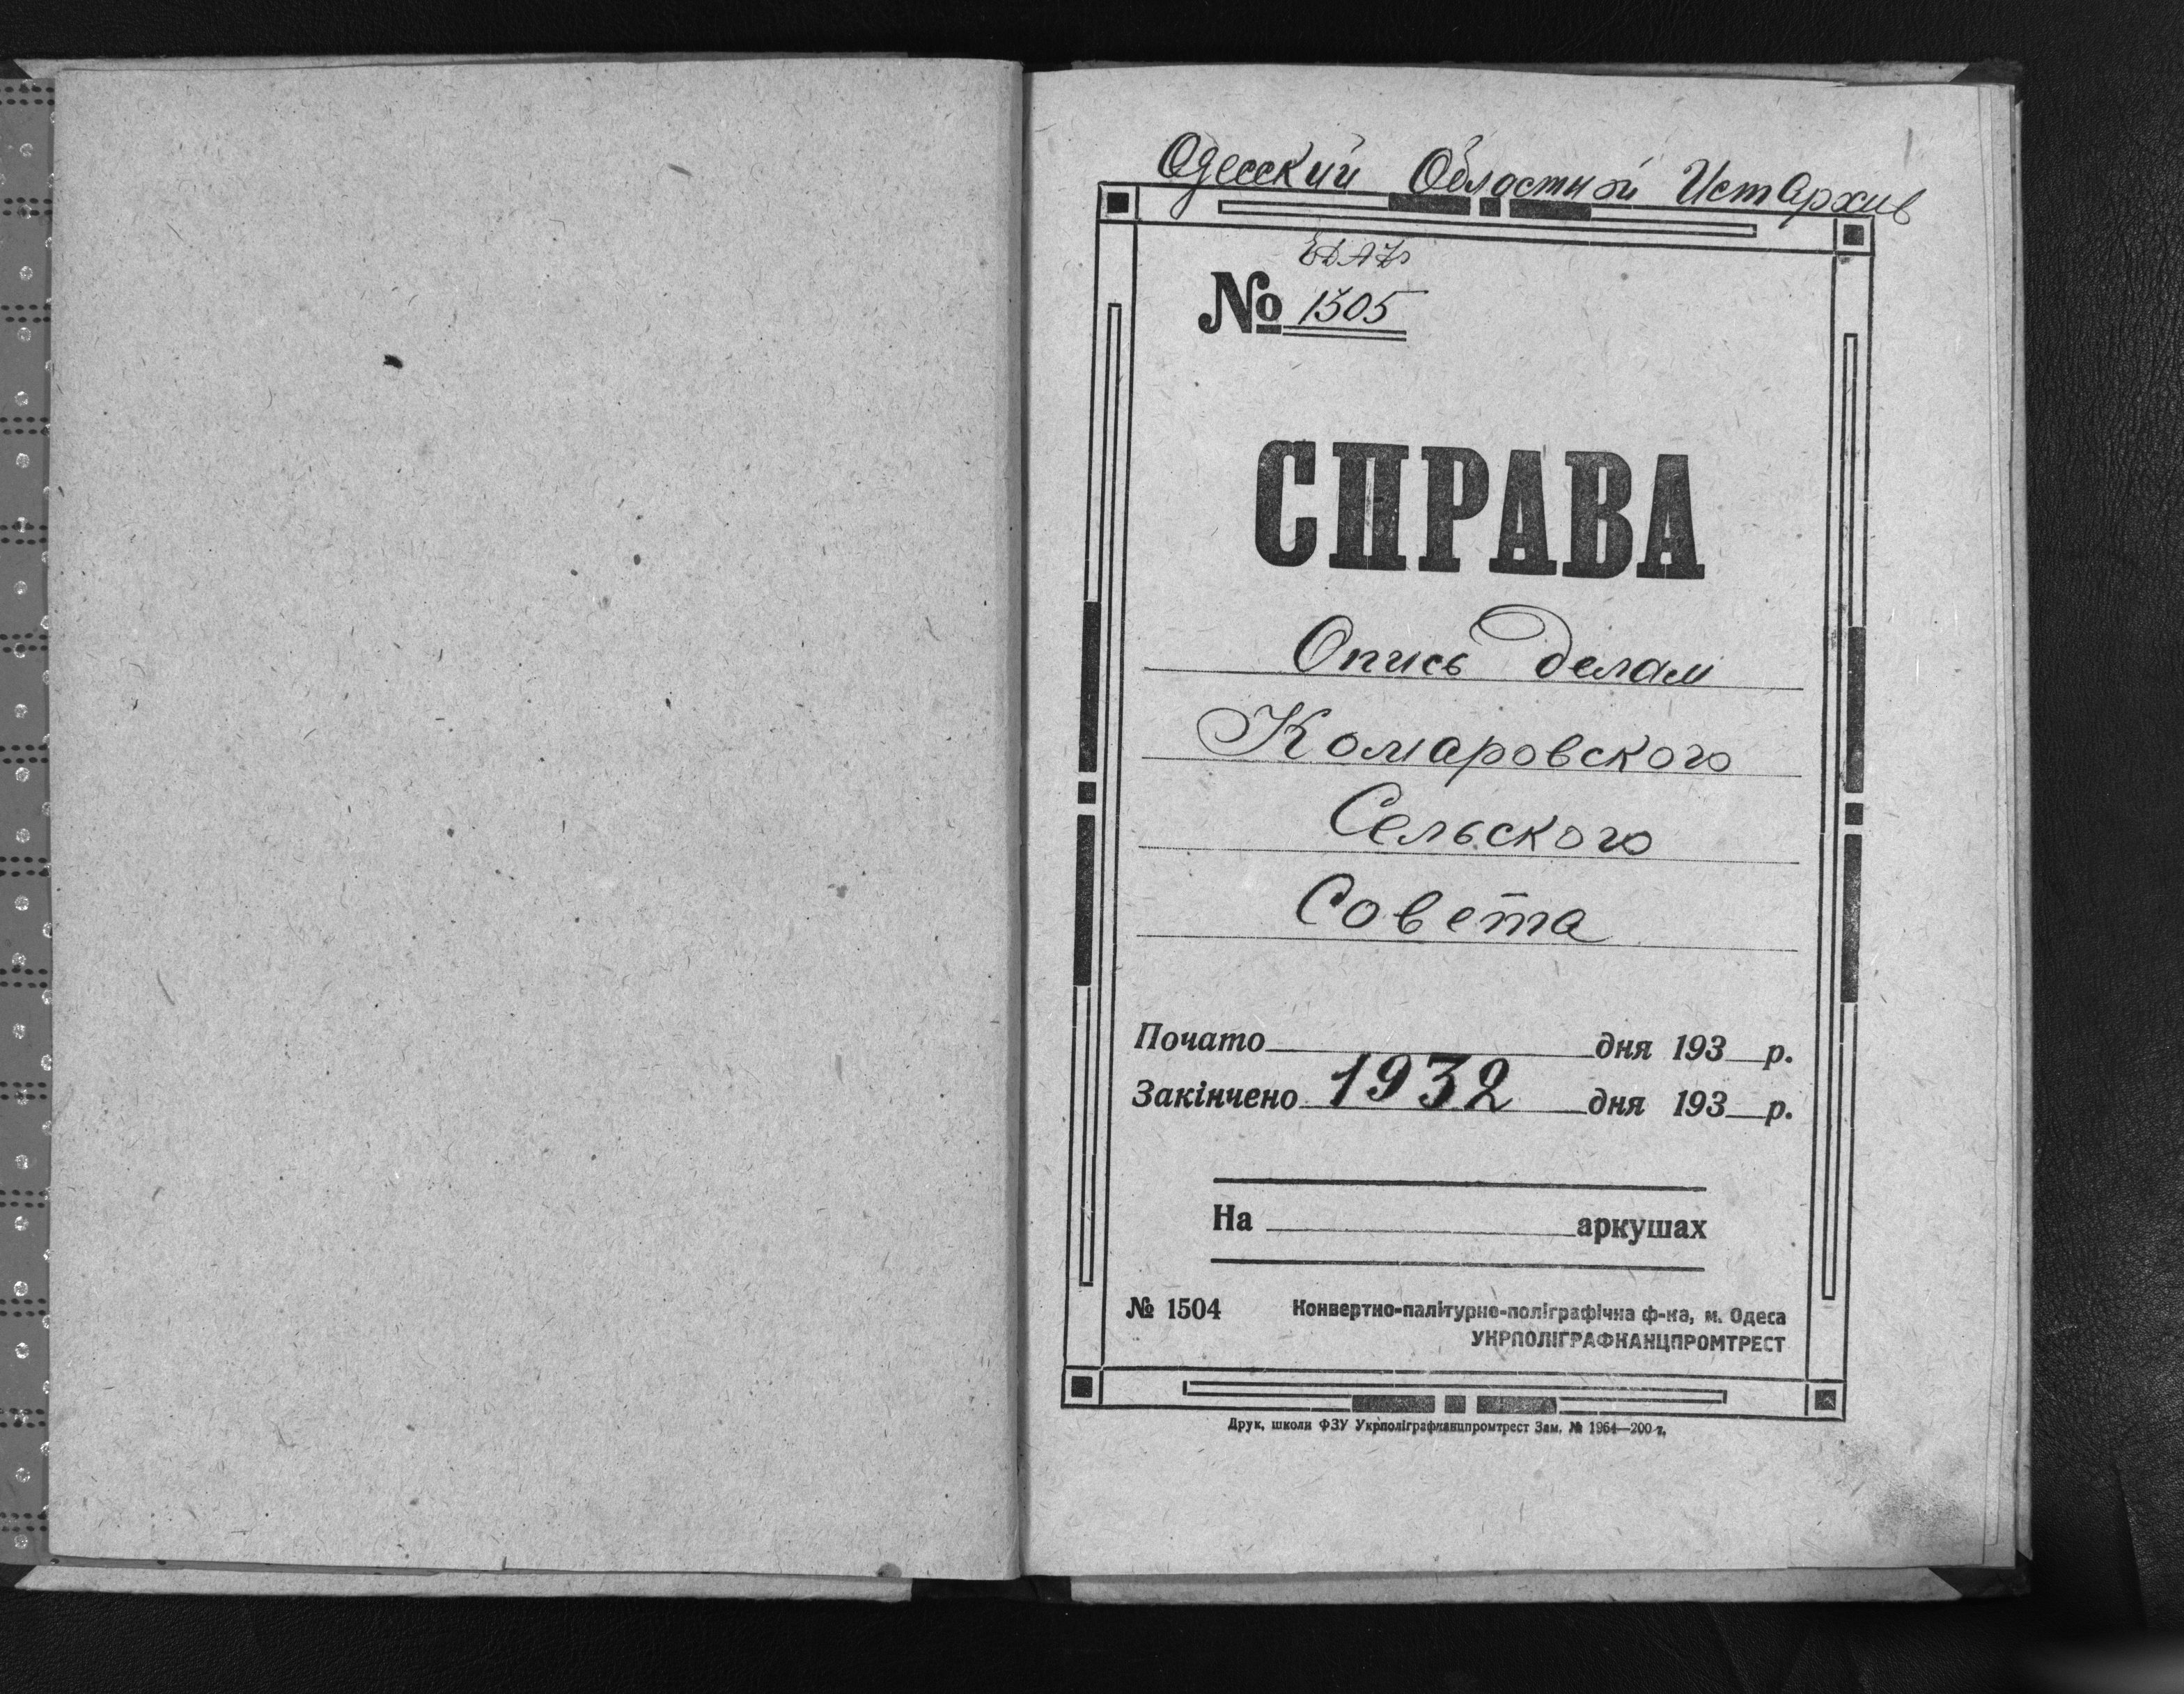 Одесский Областной ИстАрхив
№ 1505
СПРАВА
Опись делам
Комаровского
Сельского
Совета
Почато дня 193 р.
Закінчено 1932 дня 193 р.
На аркушах
№ 1504 Конвертно-палітурно-поліграфічна ф-ка, м. Одеса
УКРПОЛІГРАФКАНЦПРОМТРЕСТ
Друк. школи ФЗУ Укрполіграфканцпромтрест Зам. № 1964—200 т.